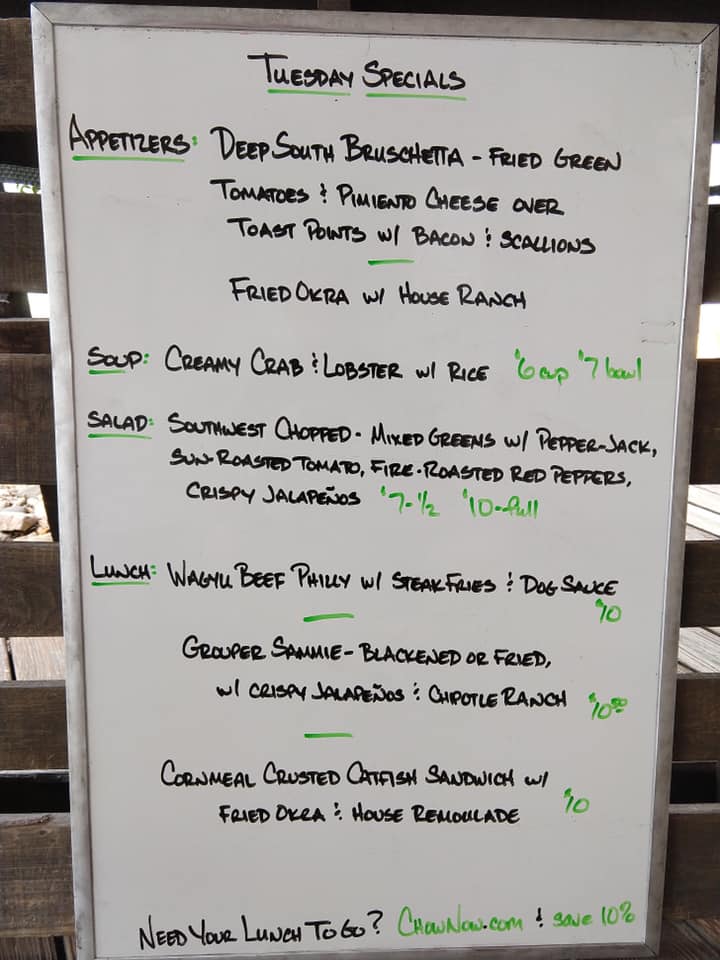 TUESDAY SPECIALS
APPETIZERS: DEEP SOUTH BRUSCHETTA - FRIED GREEN
TOMATOES & PIMIENTO CHEESE OVER
TOAST POINTS W/ BACON & SCALLIONS
FRIED OKRA W/ HOUSE RANCH
SOUP: CREAMY CRAB & LOBSTER W/ RICE $6 cup $7 bowl
SALAD: SOUTHWEST CHOPPED - MIXED GREENS W/ PEPPER-JACK,
SUN-ROASTED TOMATO, FIRE-ROASTED RED PEPPERS,
CRISPY JALAPEÑOS $7-1/2 $10-full
LUNCH: WAGYU BEEF PHILLY W/ STEAK FRIES & DOG SAUCE
$10
GROUPER SAMMIE - BLACKENED OR FRIED,
W/ CRISPY JALAPEÑOS & CHIPOTLE RANCH $10.50
CORNMEAL CRUSTED CATFISH SANDWICH W/
FRIED OKRA & HOUSE REMOULADE $10
NEED YOUR LUNCH TO GO? CHOWNOW.com & save 10%